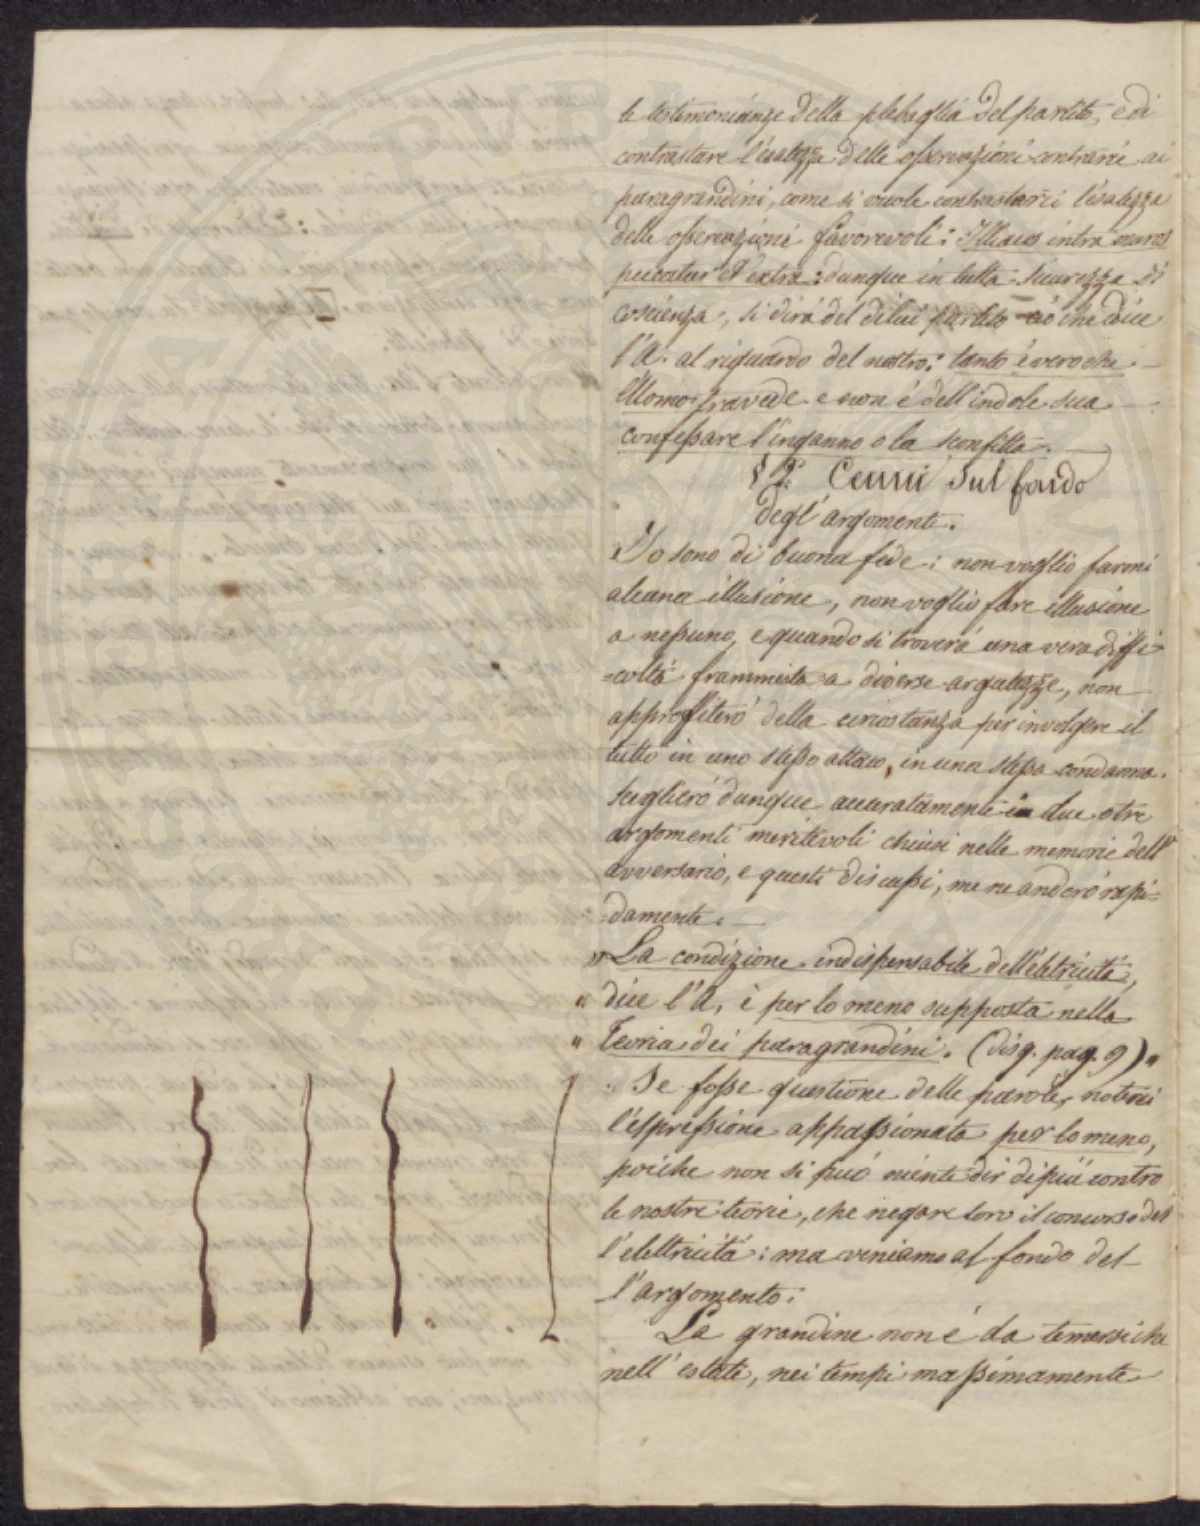 le testimonianze della plebaglia del partito, e di
contrastare l'esatezza delle osservazioni contrarie ai
paragrandini, come si vuole contrastarci l'esatezza
delle osservazioni favorevoli: Illiacos intra muros
peccatur et extra: dunque in tutta sicurezza di
coscienza, si dirà del di lui partito ciò che dice
l'A. al riguardo del nostro: tanto è vero che
l'Uomo travede e non è dell'indole sua
confessare l'inganno o la sconfitta.
§ 2.° Cenni sul fondo
degl'argomenti.
Io sono di buona fede: non voglio farmi
alcuna illusione, non voglio fare illusione
a nessuno, e quando si troverà una vera diffi=
=coltà frammista a diverse argutezze, non
approffiterò della circostanza per involgere il
tutto in uno stesso attaco, in una stessa condanna.
Sceglierò dunque accuratamente i due o tre
argomenti meritevoli chiusi nelle memorie dell'
avversario, e questi discussi, me ne anderò rapi=
=damente.
" La condizione indispensabile dell'eletricità,
" dice l'A, è per lo meno supposta nella
" Teoria dei paragrandini. (disg. pag. 9) "
Se fosse questione delle parole, noterei
l'espressione appassionata per lo meno,
poiche non si può niente dir di più contro
le nostre teorie, che negare loro il concorso del
l'elettricità: ma veniamo al fondo del
l'argomento:
La grandine non è da temersi che
nell'estate, nei tempi massimamente